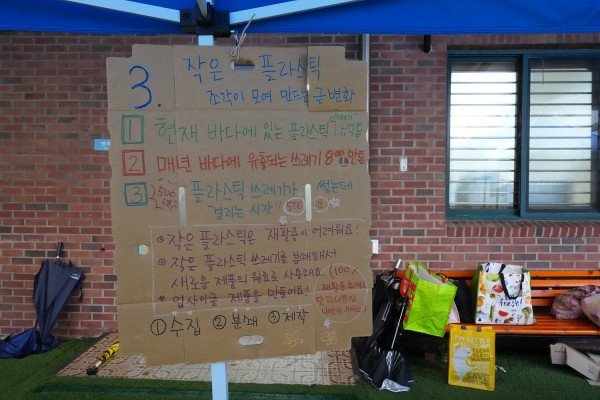 3.
작은 플라스틱
조각이 모여 만드는 큰 변화
1 현재 바다에 있는 플라스틱 쓰레기 1억톤
2 매년 바다에 유출되는 쓰레기 800만톤
3 플라스틱 쓰레기가 썩는데
걸리는 시간 500
• 작은 플라스틱은 재활용이 어려워요!
• 작은 플라스틱 쓰레기를 분쇄해서
새로운 제품의 원료로 사용해요.
* 업사이클 제품을 만들어요!
(100%
① 수집 ② 분쇄 ③ 제작
fresh!